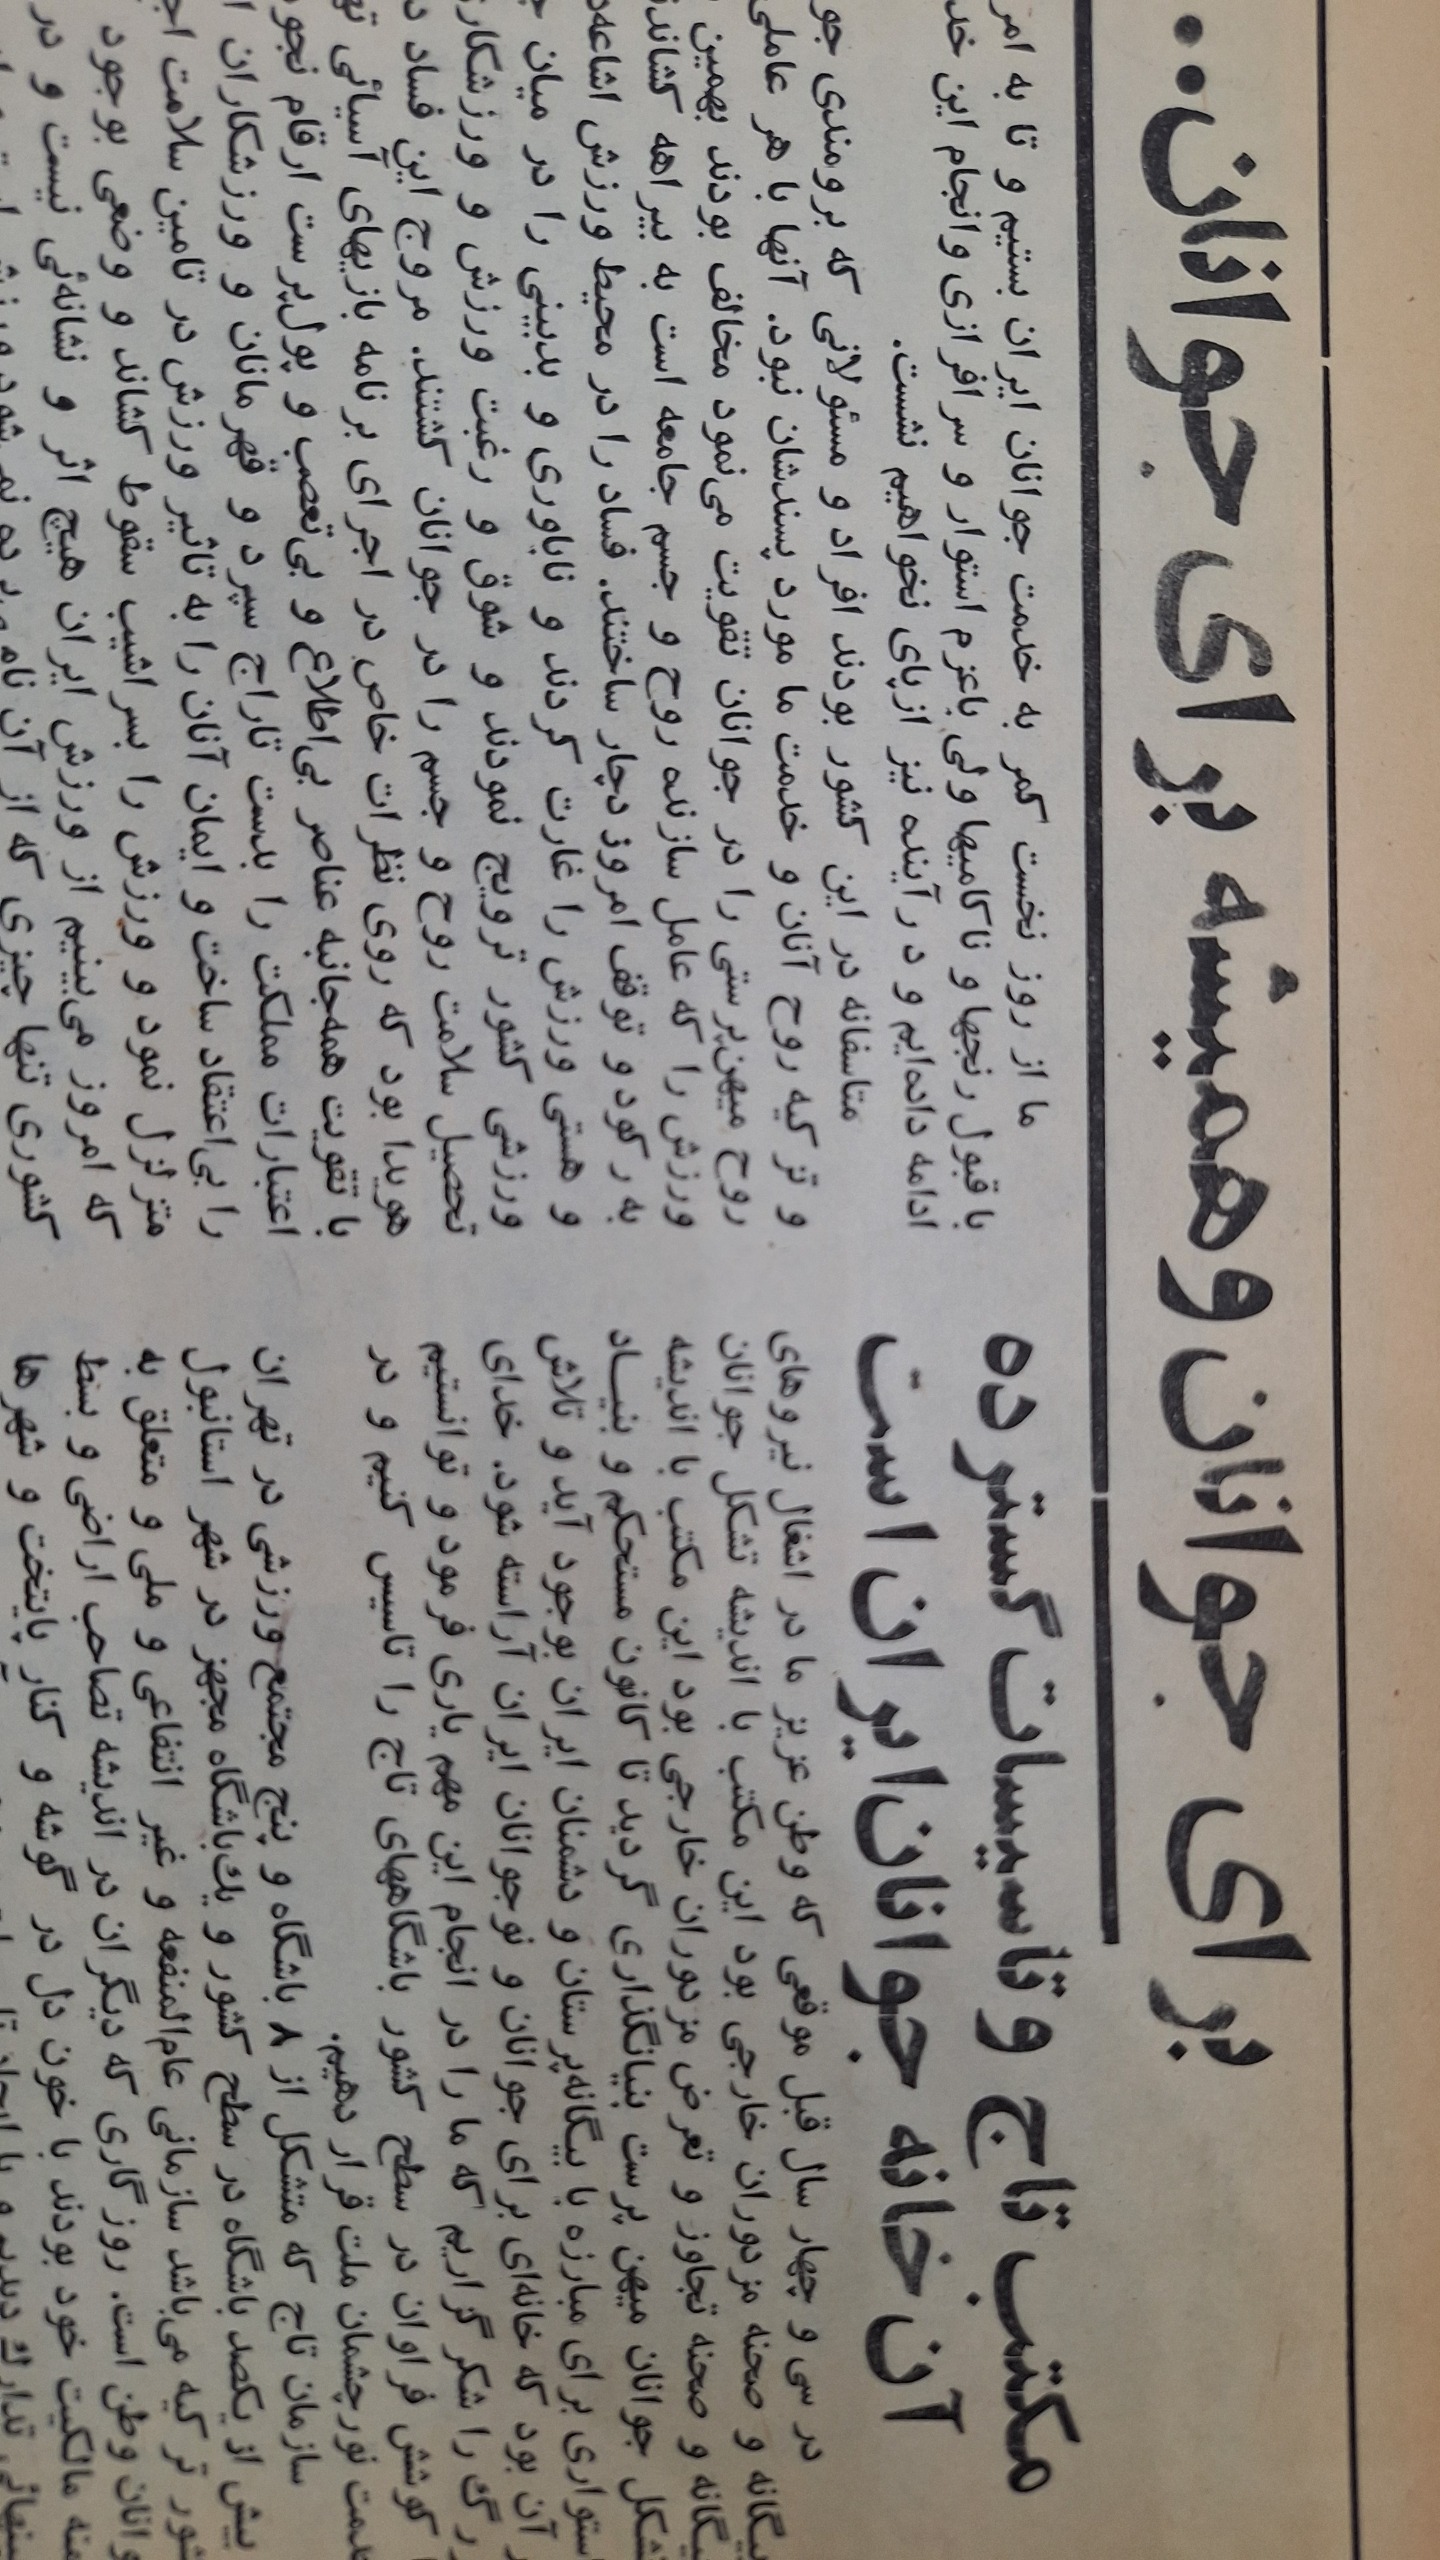 برای جوانان و همیشه برای جوانان...
مکتب تاج و تأسیسات گسترده
آن خانه جوانان ایران است
در سی و چهار سال قبل موقعی که وطن عزیز ما در اشغال نیروهای
بیگانه و صحنه مزدوران خارجی بود این مکتب با اندیشه تشکل جوانان
بیگانه و صحنه تجاوز و تعرض مزدوران خارجی بود این مکتب با اندیشه
تشکل جوانان میهن پرست بنیانگذاری گردید تا کانون مستحکم و بنیاد
استواری برای مبارزه با بیگانه‌پرستان و دشمنان ایران بوجود آید و تلاش
آن بود که خانه‌ای برای جوانان و نوجوانان ایران آراسته شود. خدای
را شکر گزاریم که ما را در انجام این مهم یاری فرمود و توانستیم
کوشش فراوان در سطح کشور باشگاههای تاج را تاسیس کنیم و در
خدمت نورچشمان ملت قرار دهیم.
سازمان تاج که متشکل از ۸ باشگاه و پنج مجتمع ورزشی در تهران
بیش از یکصد باشگاه در سطح کشور و یك باشگاه مجهز در شهر استانبول
کشور ترکیه می‌باشد سازمانی عام‌المنفعه و غیر انتفاعی و ملی و متعلق به
جوانان وطن است. روزگاری که دیگران در اندیشه تصاحب اراضی و بسط
مالکیت خود بودند با خون دل در گوشه و کنار پایتخت و شهرها
ما از روز نخست کمر به خدمت جوانان ایران بستیم و تا به امر
با قبول رنجها و ناکامیها ولی باعزم استوار و سرافرازی وانجام این خد
ادامه داده‌ایم و در آینده نیز ازپای نخواهیم نشست.
متاسفانه در این کشور بودند افراد و مسئولانی که برومندی جو
و تزکیه روح آنان و خدمت ما مورد پسندشان نبود. آنها با هر عاملی
روح میهن‌پرستی را در جوانان تقویت می‌نمود مخالف بودند بهمین
ورزش را که عامل سازنده روح و جسم جامعه است به بیراهه کشاندن
به رکود و توقف امروز دچار ساختند. فساد را در محیط ورزش اشاعه
و هستی ورزش را غارت کردند و ناباوری و بدبینی را در میان ج
ورزشی کشور ترویج نمودند و شوق و رغبت ورزش و ورزشکار
تحصیل سلامت روح و جسم را در جوانان کشتند. مروج این فساد د
هویدا بود که روی نظرات خاص در اجرای برنامه بازیهای آسیائی ته
با تقویت همه‌جانبه عناصر بی‌اطلاع و بی‌تعصب و پول‌پرست ارقام نجو
اعتبارات مملکت را بدست تاراج سپرد و قهرمانان و ورزشکاران ا
را بی‌اعتقاد ساخت و ایمان آنان را به تاثیر ورزش در تامین سلامت اج
متزلزل نمود و ورزش را بسراشیب سقوط کشاند و وضعی بوجود
که امروز می‌بینیم از ورزش ایران هیچ اثر و نشانه‌ئی نیست و در
کشوری تنها چیزی که از آن نام برده نمی‌شود ورزش